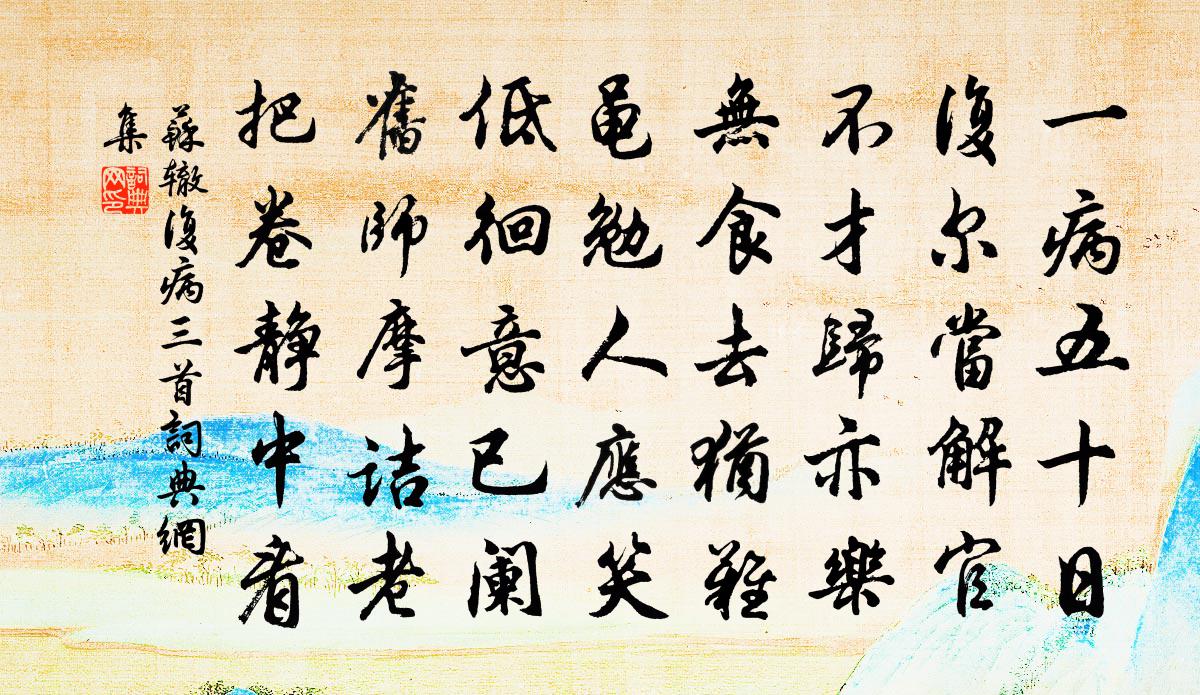 一病五十日
復尔當解官
不才歸亦樂
無食去猶難
黽勉人應笑
低徊意已阑
舊師摩詰老
把卷静中看
蘇辙復病三首詞典網
集
詞典
网印